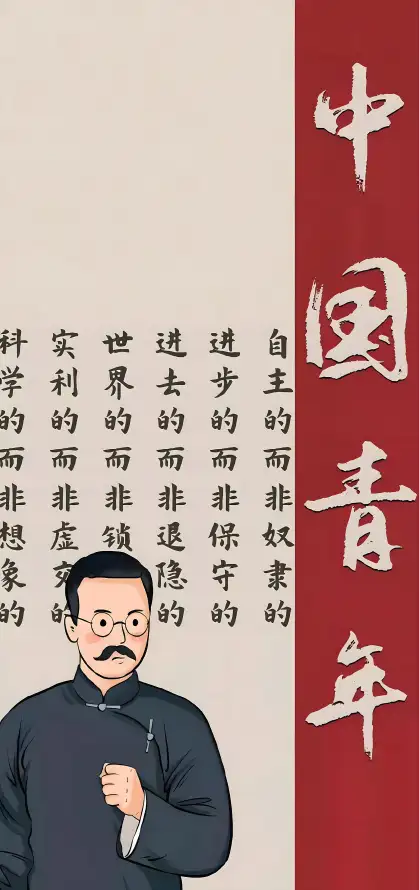 中国青年
自主的而非奴隶的
进步的而非保守的
进去的而非退隐的
世界的而非锁
实利的而非虚
科学的而非想象的